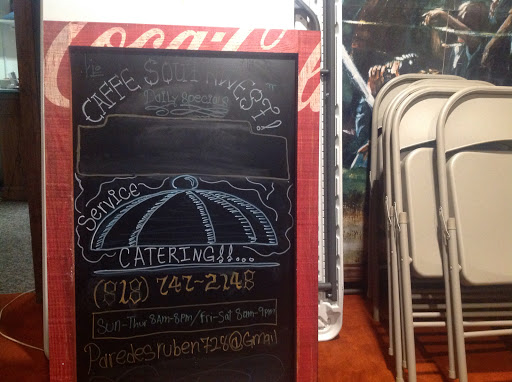 Coca-Cola
The
CAFFE SOUTHWEST!!
Daily Specials
Service
CATERING!!...
(818) 747-2148
Sun-Thur 8AM-8PM/Fri-Sat 8am-9pm
Paredesruben728@Gmail